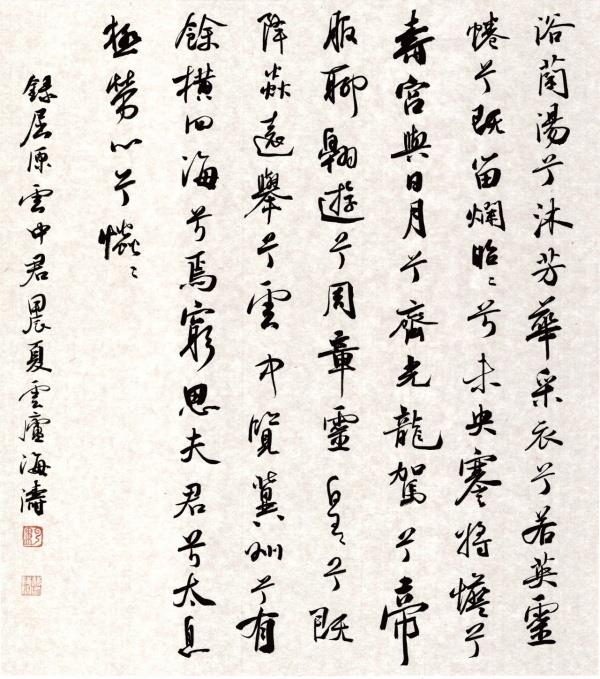 浴蘭湯兮沐芳華采衣兮若英靈
蜷兮既留爛昭〻兮未央蹇將憺兮
壽宮與日月兮齊光龍駕兮帝
服聊翱遊兮周章靈皇〻兮既
降焱遠舉兮雲中覽冀州兮有
餘橫四海兮焉窮思夫君兮太息
極勞心兮𢥞〻
錄屈原雲中君夏雲廬海濤